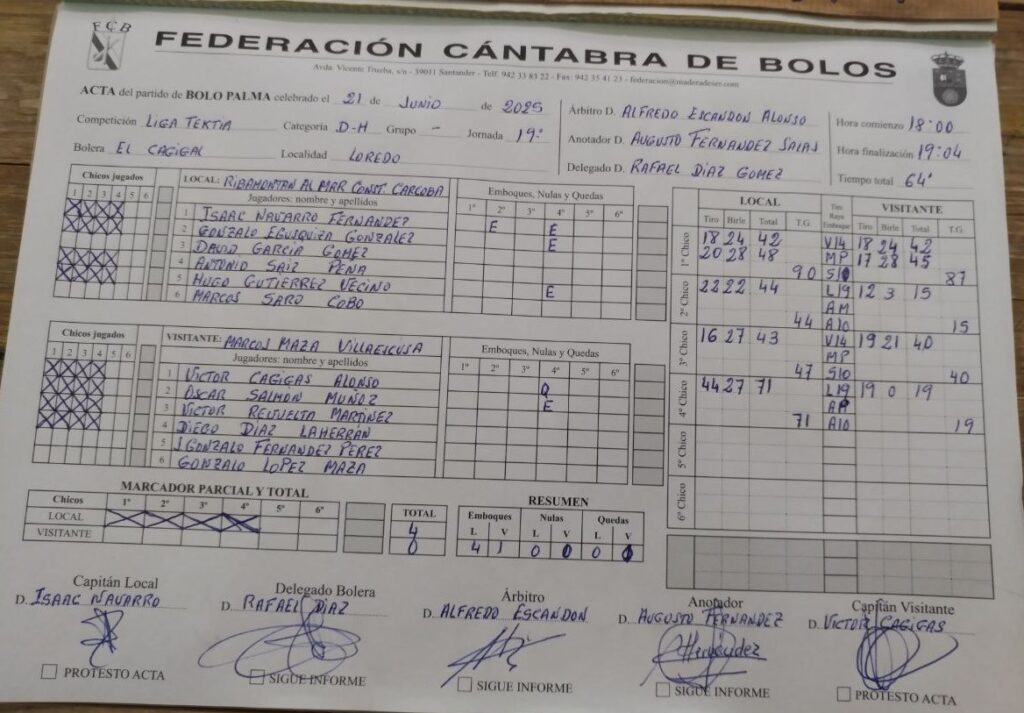 FCB
FEDERACIÓN CÁNTABRA DE BOLOS
Avda. Vicente Trueba, s/n - 39011 Santander - Telf: 942 33 83 22 - Fax: 942 35 41 23 - federacion@maderadeser.com
ACTA del partido de BOLO PALMA celebrado el 21 de JUNIO de 2025
Competición LIGA TEKTIA Categoría D-H Grupo - Jornada 19ª
Bolera EL CAGIGAL Localidad LOREDO
Árbitro D. ALFREDO ESCANDON ALONSO
Anotador D. AUGUSTO FERNANDEZ SALAS
Delegado D. RAFAEL DIAZ GOMEZ
Hora comienzo 18:00
Hora finalización 19:04
Tiempo total 64'
Chicos jugados
1 2 3 4 5 6
LOCAL: RIBAMONTAN AL MAR CONST. CARCOBA
Jugadores: nombre y apellidos
1 ISAAC NAVARRO FERNANDEZ
2 GONZALO EGUSQUIZA GONZALEZ
3 DAVID GARCIA GOMEZ
4 ANTONIO SAIZ PEÑA
5 HUGO GUTIERREZ VECINO
6 MARCOS SARO COBO
Emboques, Nulas y Quedas
1º 2º 3º 4º 5º 6º
E E
E
E
Chicos jugados
1 2 3 4 5 6
VISITANTE: MARCOS MAZA VILLAESCUSA
Jugadores: nombre y apellidos
1 VICTOR CAGIGAS ALONSO
2 OSCAR SALMON MUÑOZ
3 VICTOR REVUELTA MARTINEZ
4 DIEGO DIAZ LAHERRÁN
5 J. GONZALO FERNANDEZ PEREZ
6 GONZALO LOPEZ MAZA
Emboques, Nulas y Quedas
1º 2º 3º 4º 5º 6º
Q
E
LOCAL VISITANTE
Tiro Birle Total T.G. Tiro Raya Emboque Tiro Birle Total T.G.
1º Chico 18 24 42 V14 18 24 42
20 28 48 MP 17 28 45
90 S10 87
2º Chico 22 22 44 L19 12 3 15
AM
44 A10 15
3º Chico 16 27 43 V14 19 21 40
MP
47 S10 40
4º Chico 44 27 71 L19 19 0 19
71 A10 19
5º Chico
6º Chico
MARCADOR PARCIAL Y TOTAL
Chicos 1º 2º 3º 4º 5º 6º
LOCAL
VISITANTE
TOTAL
4
0
RESUMEN
Emboques Nulas Quedas
L V L V L V
4 1 0 0 0
Capitán Local
D. ISAAC NAVARRO
PROTESTO ACTA
Delegado Bolera
D. RAFAEL DIAZ
SIGUE INFORME
Árbitro
D. ALFREDO ESCANDON
SIGUE INFORME
Anotador
D. AUGUSTO FERNANDEZ
SIGUE INFORME
Capitán Visitante
D. VICTOR CAGIGAS
PROTESTO ACTA